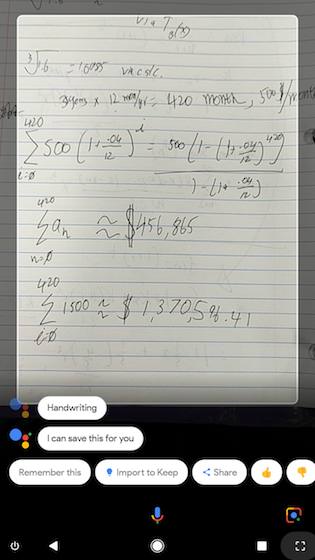 via T₈(x)
∛1.6 = 1.6055 via calc.
35 years × 12 mon/yr = 420 month, 500 $/month
420
∑ 500 (1 + .04/12)^i = 500 (1 - (1 + .04/12)^420) / 1 - (1 + .04/12)
i=0
420
∑ aₙ ≈ $456,865
n=0
420
∑ 1500 ≈ $1,370,596.41
i=0
Handwriting
I can save this for you
Remember this
Import to Keep
Share